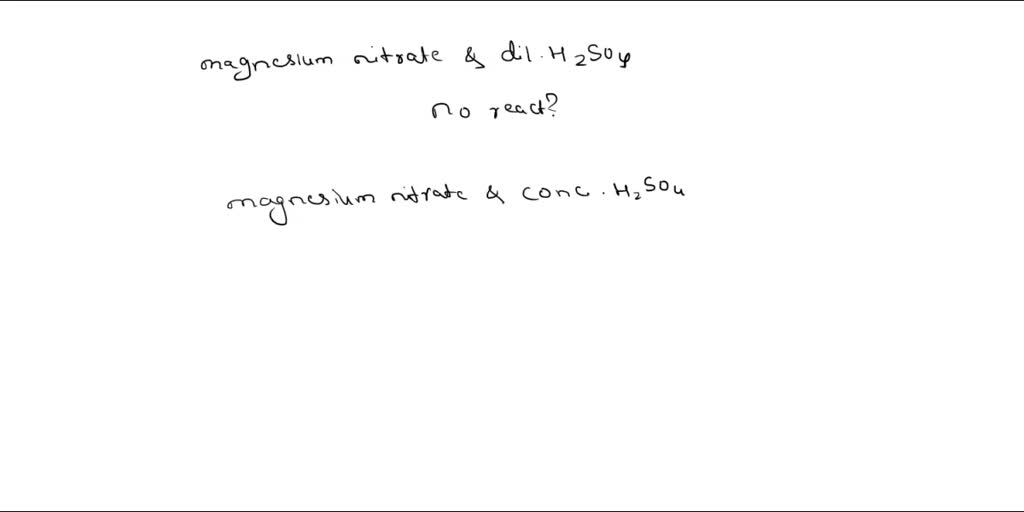 magnesium nitrate & dil. H₂SO₄
no react?
magnesium nitrate & conc. H₂SO₄